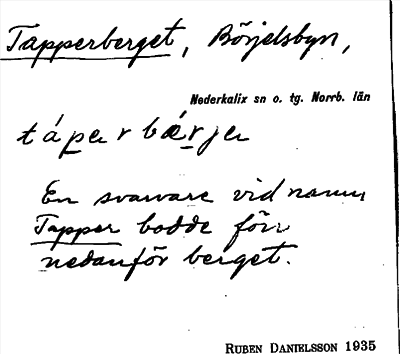 Tapperberget, Börjelsbyn,
Nederkalix sn o. tg. Norrb. län
tápɐrbǽrjɐ
En svarvare vid namn
Tapper bodde förr
nedanför berget.
RUBEN DANIELSSON 1935